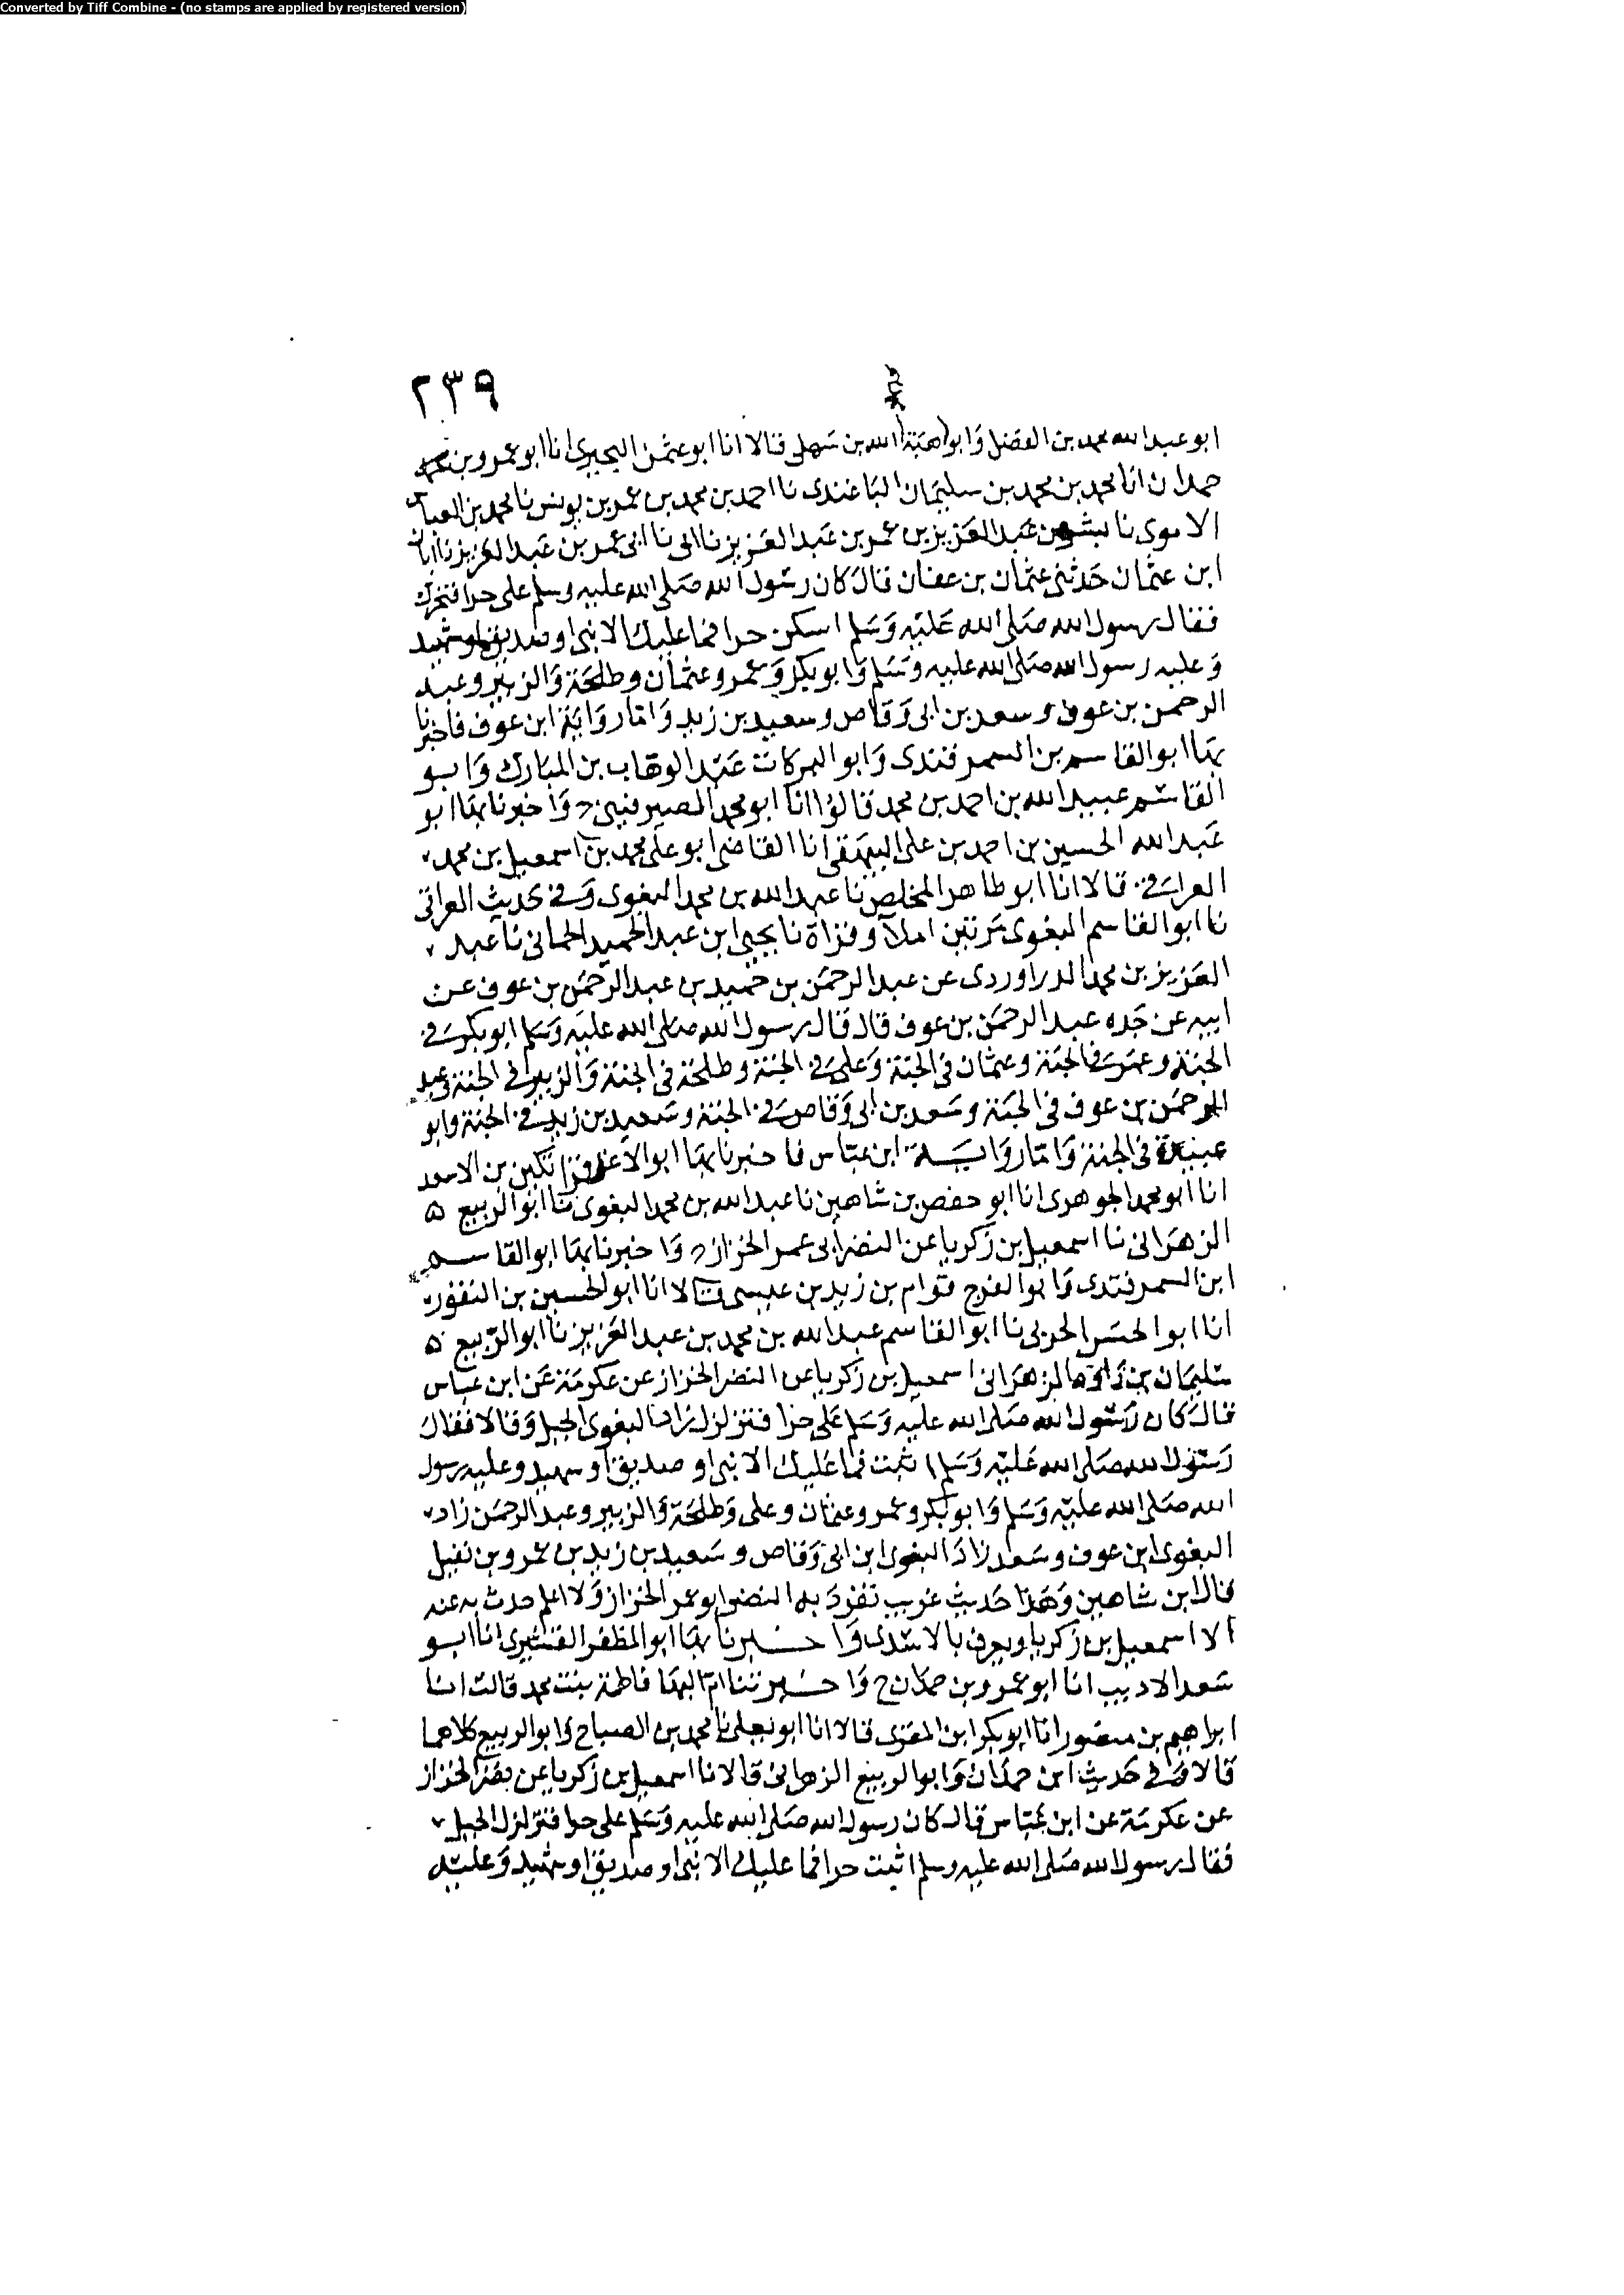 Converted by Tiff Combine - (no stamps are applied by registered version)
٢٣٩
ابو عبد الله محمد بن الفضل وَابو هبة الله بن سَهل قالا انا ابو عثمن البحيرى انا ابو عمرو بن
حمدان انا محمد بن محمد بن سليمان الباغندى نا احمد بن محمد بن عمر بن يونس نا محمد بن العباس
الاموى نا بشر بن عبد العَزيز بن عمر بن عَبد العَزيز نا ابى نا ابى عمر بن عَبد العزيز نا ابان
ابن عثمان حَدثنى عثمان بن عفان قال كان رسُول الله صَلى الله عليه وسلم على حرا فتحرك
فقال رسول الله صَلى الله عَليْه وَسَلم اسكن حرا فما عليك الا نبى او صديق او شهيد
وَعليه رسول الله صَلى الله عليه وَسَلم وَابو بكر وَعمر وعثمان وطلحَة وَالزبير وعبد
الرحمن بن عوف وسعد بن ابى وَقاص وسعيد بن زيد وَامّا روَاية ابن عوف فاخبرنا
بهَا ابو القاسم بن السمرقندى وَابو البركات عَبد الوهّاب بن المبَارك وَابو
القاسم عبيد الله بن احمد بن محمد قالوا انا ابو محمد الصيرفينى ح وَاخبرنا بهَا ابو
عَبد الله الحسين بن احمد بن على البيهَقى انا القاضى ابو على محمد بن اسمعيل بن محمد
العراقى قالا انا ابو طاهر المخلص نا عبد الله بن محمد البغوى وَفى حَديث العراقى
نا ابو القاسم البغوى مَرتين املآ وقراة نا يحيى ابن عبد الحميد الحمانى نا عبد
العَزيز بن محمد الدراوردى عن عبد الرحمَن بن حميد بن عبد الرحمَن بن عوف عن
ابيه عن جَده عبد الرحمَن بن عوف قال قال رسول الله صَلى الله عليَه وَسَلم ابو بكر فى
الجنة وعمر فى الجنة وعثمان فى الجنّة وَعلى فى الجنة وطلحَة فى الجنة وَالزبير فى الجنة وعبد
الرحمَن بن عوف فى الجنة وسَعد بن ابى وَقاص فى الجنة وسَعيد بن زيد فى الجنة وابو
عبيدة فى الجنة وَامّا روَاية ابن عبّاس فاخبرنا بهَا ابو الاعز قراتكين بن الاسعد
انا ابو محمد الجوهرى انا ابو حفص بن شاهين نا عبد الله بن محمد البغوى نا ابو الربيع
الزهرَانى نا اسمعيل بن زكريا عن النضر ابى عمر الخزاز ح وَاخبرنا بهَا ابو القاسم
ابن السمرقندى وَابو الفرج قوام بن زيد بن عيسى قالا انا ابو الحسين بن النقور
انا ابو الحسَن الحربى نا ابو القاسم عبد الله بن محمد بن عبد العَزيز نا ابو الرّبيع
سليمان بن دَاود الزهرَانى اسمعيل بن زكريا عن النضر الخزاز عن عكرمَة عَن ابن عباس
قال كان رَسُول الله صَلى الله عليه وَسَلم عَلى حرا فتزلزل زاد البغوى الجبل وَقالا فقال
رَسُول الله صَلى الله عَليْه وَسَلم اثبت فما عَليك الا نبى او صديق او شهيد وعليه رسول
الله صَلى الله عليْه وَسَلم وَابو بكر وعمر وعثمان وعلى وَطلحَة وَالزبير وعبد الرحمَن زاد
البغوى ابن عوف وسَعد زادَ البغوى ابن ابى وَقاص وسَعيد بن زيد بن عمرو بن نفيل
قال ابن شاهين وَهَذا حَديث غريب تفرّدَ به النضر ابو عمر الخزاز وَلا اعلم حدث به عنه
الا اسمعيل بن زكريا ويعرف بالاسَدى وَاخبرنا بهَا ابو المظفر القشيرى انا ابو
سَعد الاديب انا ابو عمرو بن حمدان ح وَاخبرتنا امّ البهَا فاطمة بنت محمد قالت انا
ابراهيم بن منصُور انا ابو بكر ابن المقرى قالا انا ابو يعلى نا محمد بن الصباح وَابو الربيع كلاهما
قالا وَفى حَديث ابن حمدَان وَابو الربيع الزهرانى قالا نا اسمعيل بن زكريا عن نضر الخزاز
عن عكرمَة عن ابن عبّاس قال كان رسول الله صَلى الله عليه وَسَلم على حرا فتزلزل الجبل
فقال رسول الله صَلى الله عليه وسلم اثبت حرا فما عليك الا نبى او صديق او شهيد وَعليْه